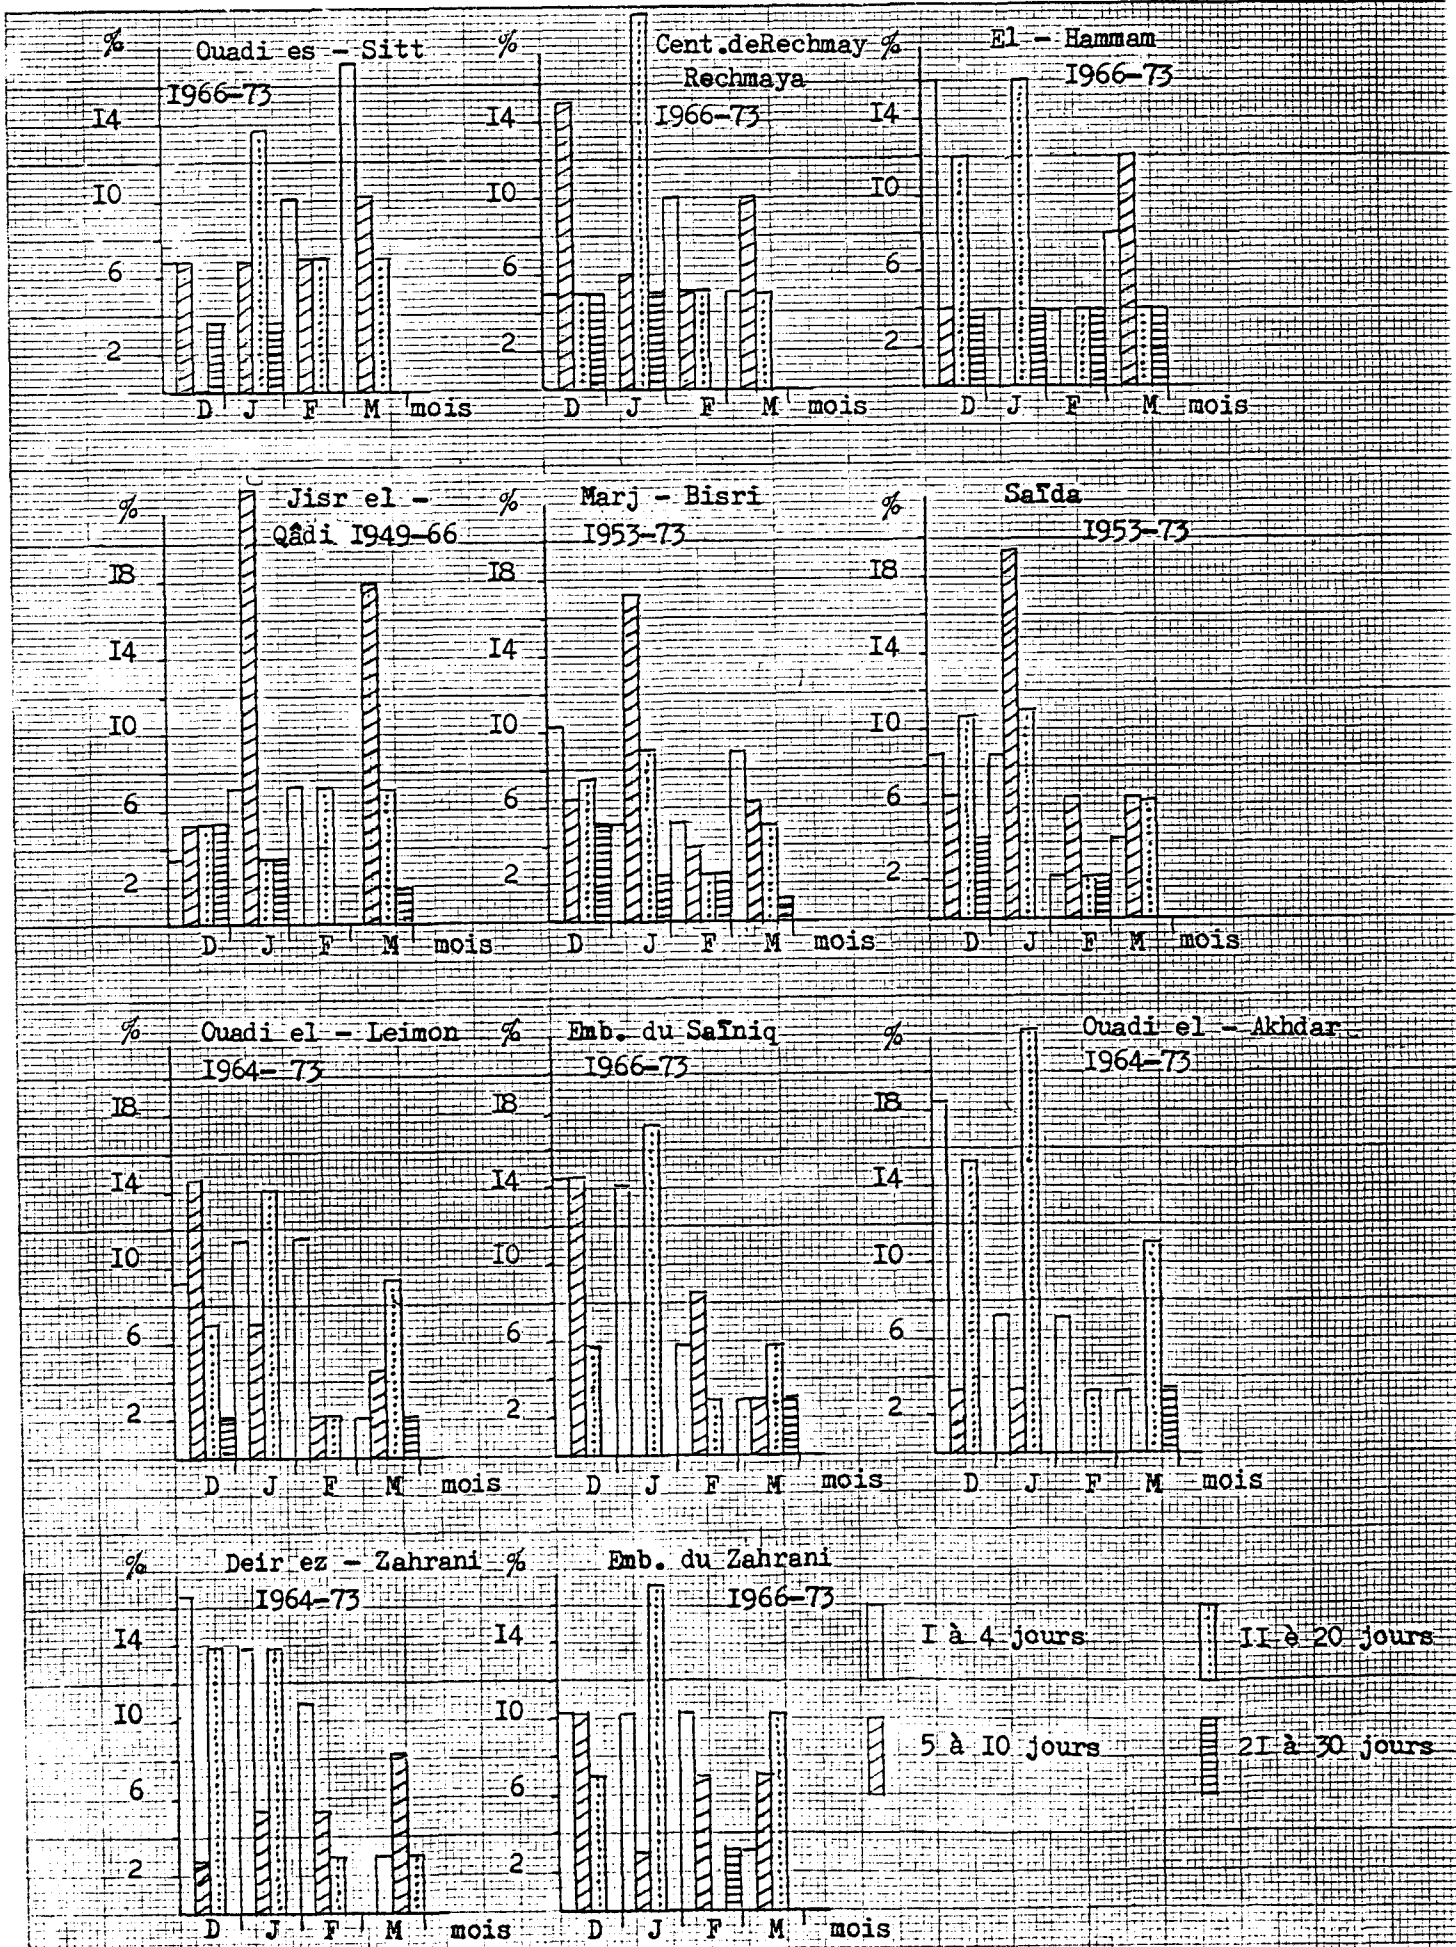 % Ouadi es - Sitt
I966-73
I4
I0
6
2
D J F M mois
% Cent.deRechmay
Rechmaya
I966-73
I4
I0
6
2
D J F M mois
% El - Hammam
I966-73
I4
I0
6
2
D J F M mois
% Jisr el -
Qâdi I949-66
I8
I4
I0
6
2
D J F M mois
% Marj - Bisri
I953-73
I8
I4
I0
6
2
D J F M mois
% Saïda
I953-73
I8
I4
I0
6
2
D J F M mois
% Ouadi el - Leimon
I964-73
I8
I4
I0
6
2
D J F M mois
% Emb. du Saïniq
I966-73
I8
I4
I0
6
2
D J F M mois
% Ouadi el - Akhdar
I964-73
I8
I4
I0
6
2
D J F M mois
% Deir ez - Zahrani
I964-73
I4
I0
6
2
D J F M mois
% Emb. du Zahrani
I966-73
I4
I0
6
2
D J F M mois
I à 4 jours
II è 20 jours
5 à I0 jours
2I à 30 jours